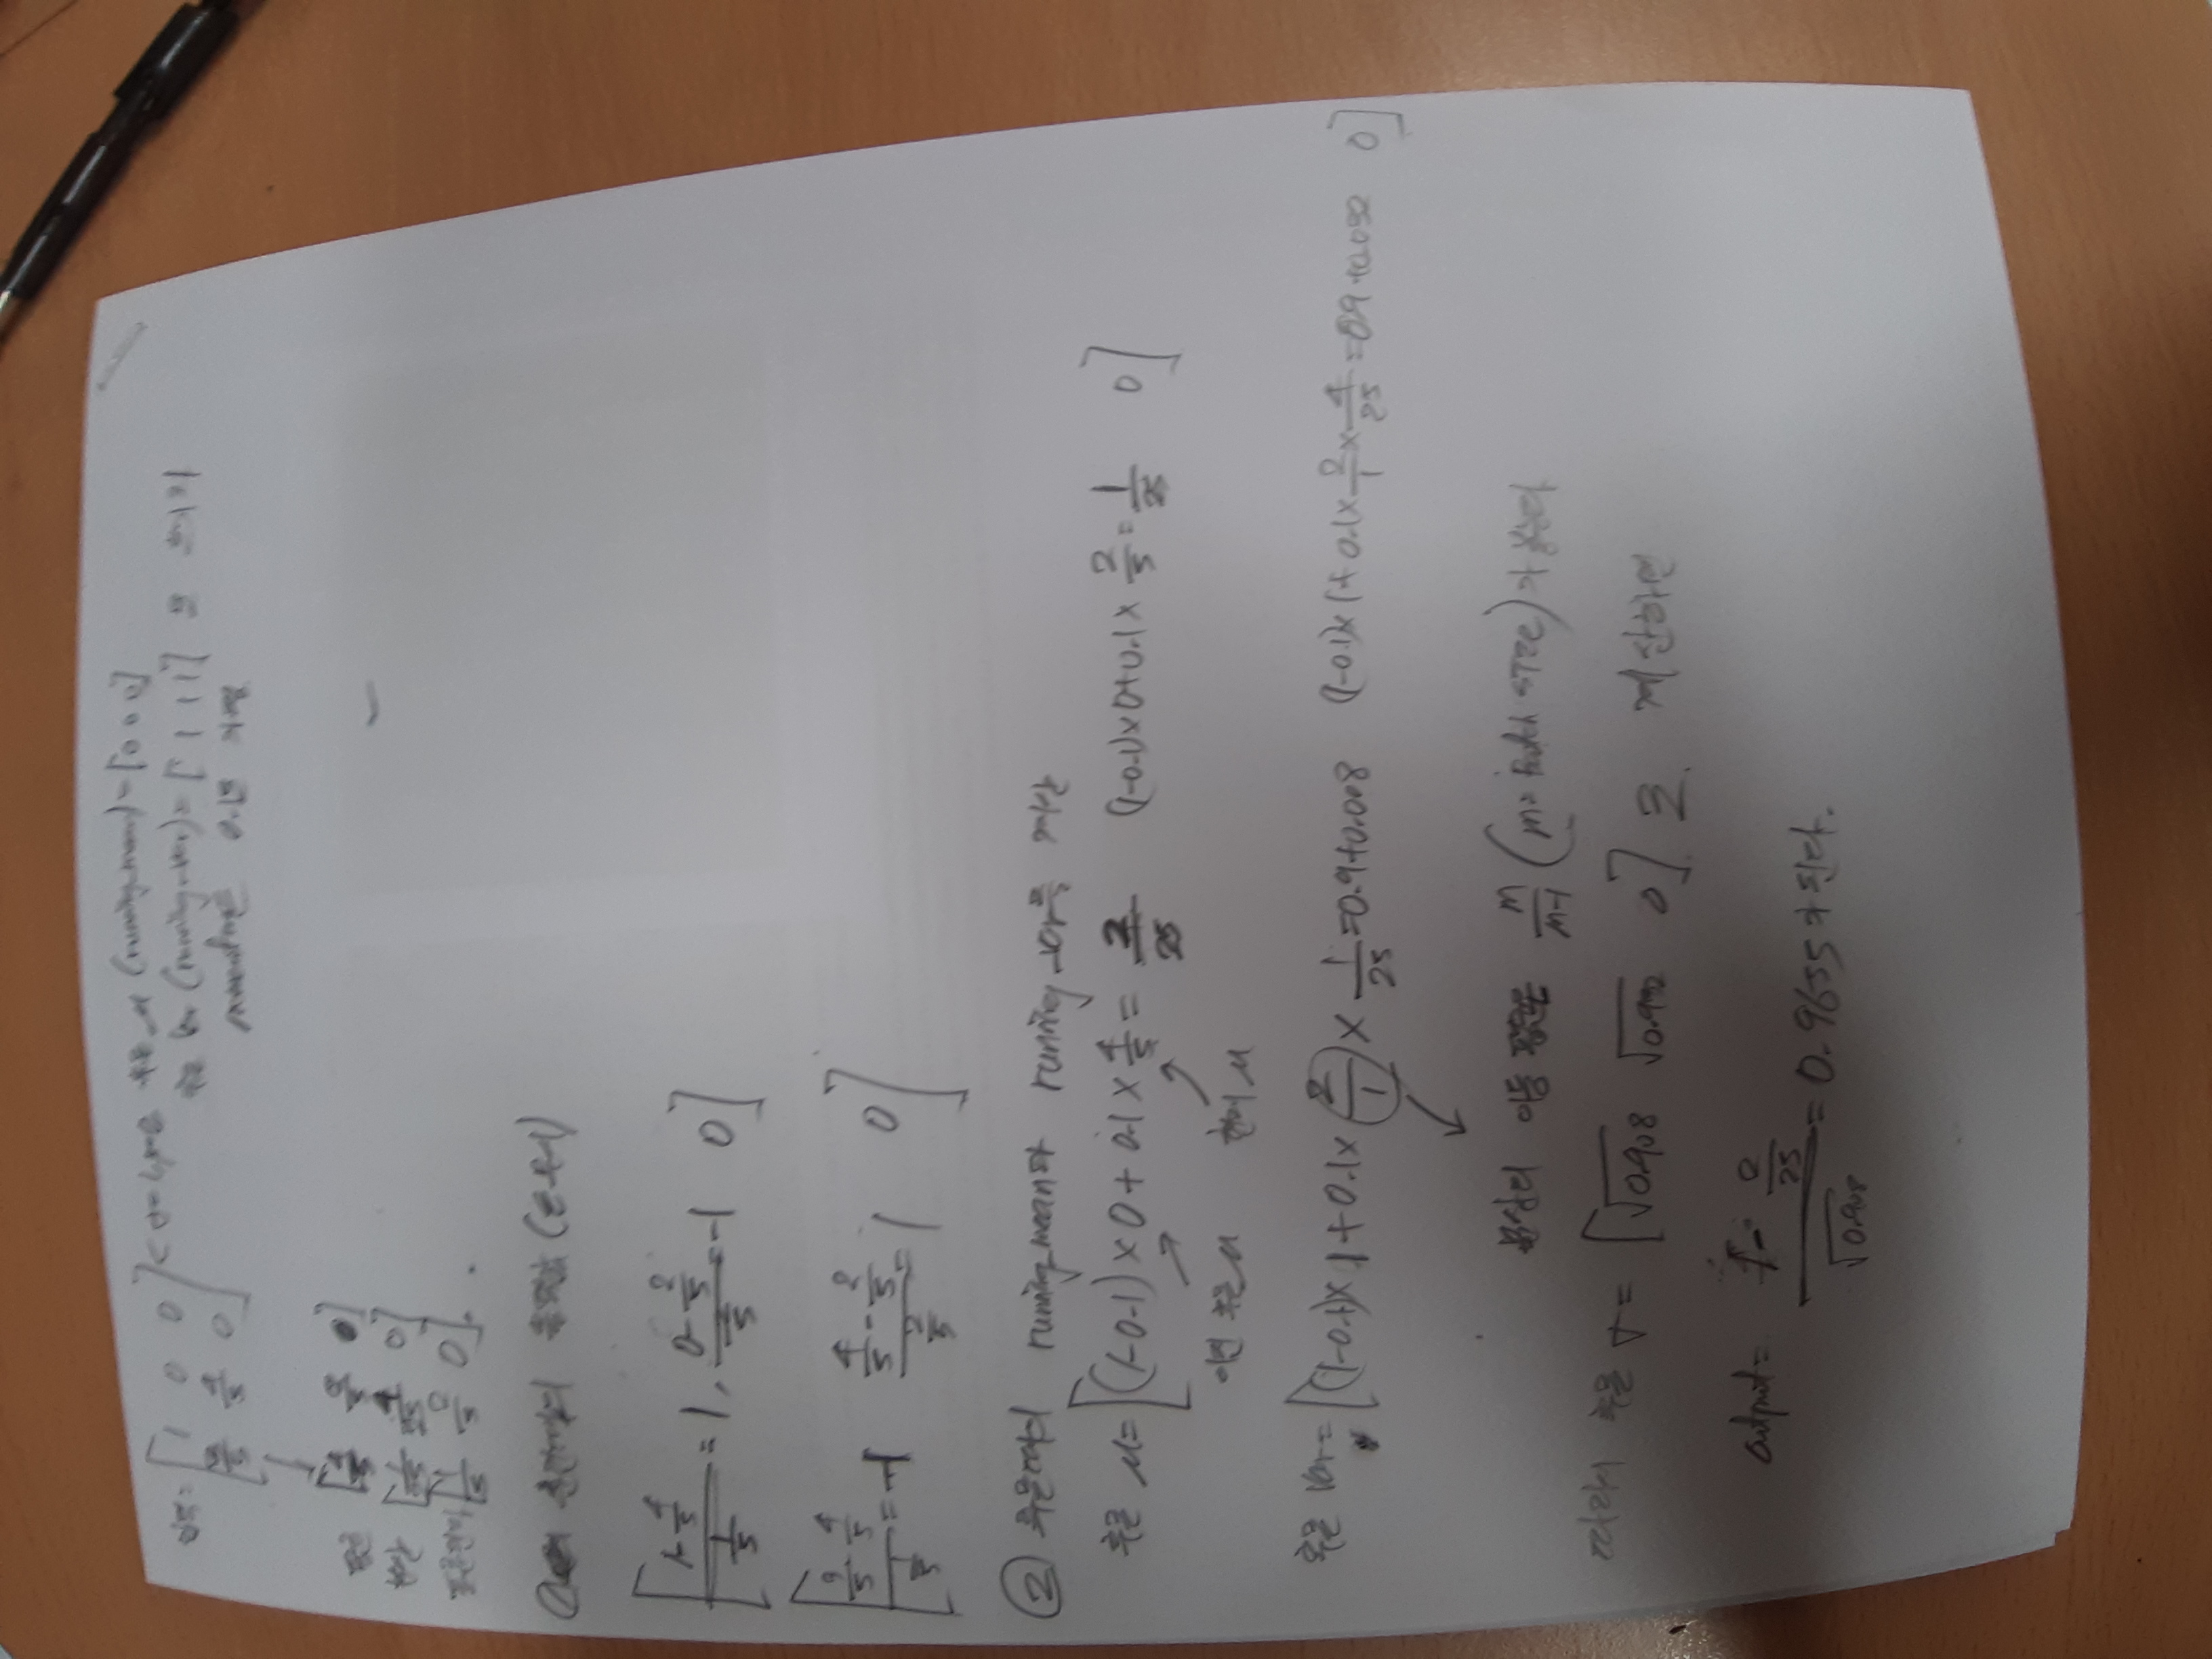 입력 = [1 0 0 추론 μ (running_mean) = [0 0 0]
3/5 4/5 0] 추론 var (running_var) = [1 1 1] 로 초기화
momentum은 0.1로 가정
평균 [4/5 2/5 0]
분산 [1/25 4/25 0]
표준편차 [1/5 2/5 0]
① 훈련시의 출력값
[(1-4/5)/(1/5) = 1, (0-2/5)/(2/5) = -1 0]
[(3/5-4/5)/(1/5) = -1 (4/5-2/5)/(2/5) = 1 0]
② 추론때의 running_mean과 running_var를 계산
추론 μ = [(1-0.1)×0 + 0.1×4/5 = 2/25 (1-0.1)×0+0.1×2/5 = 1/25 0]
이전 추론 μ 현재 μ
추론 var = [(1-0.1)×1+0.1×2/1×1/25=0.9+0.008 (1-0.1)×1+0.1×2/1×4/25=0.9+0.032 0]
분산의 이동 평균은 m/m-1 (m= Batch size)가 붙는다
따라서 추론 σ = [√0.908 √0.932 0]로 계산하면
output = (1-2/25)/√0.908 = 0.9655가 된다.